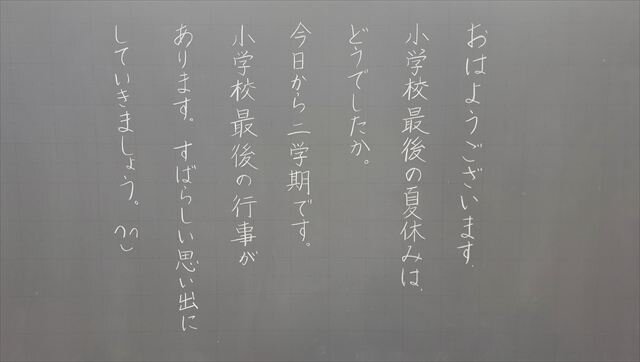 おはようございます.
小学校最後の夏休みは.
どうでしたか。
今日から二学期です。
小学校最後の行事が
あります。すばらしい思い出に
していきましょう。